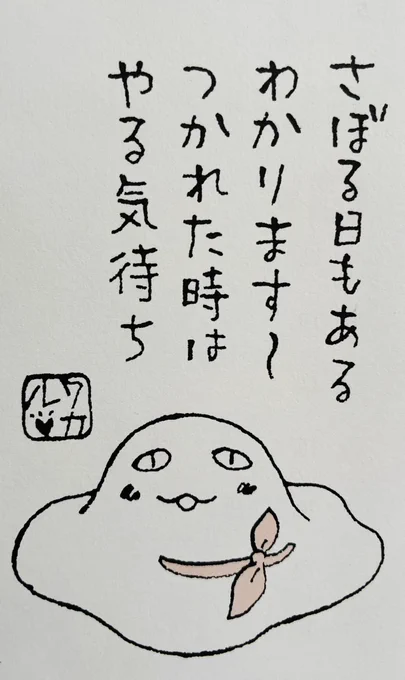 さぼる日もある
わかります〜
つかれた時は
やる気待ち
ワカ
ル